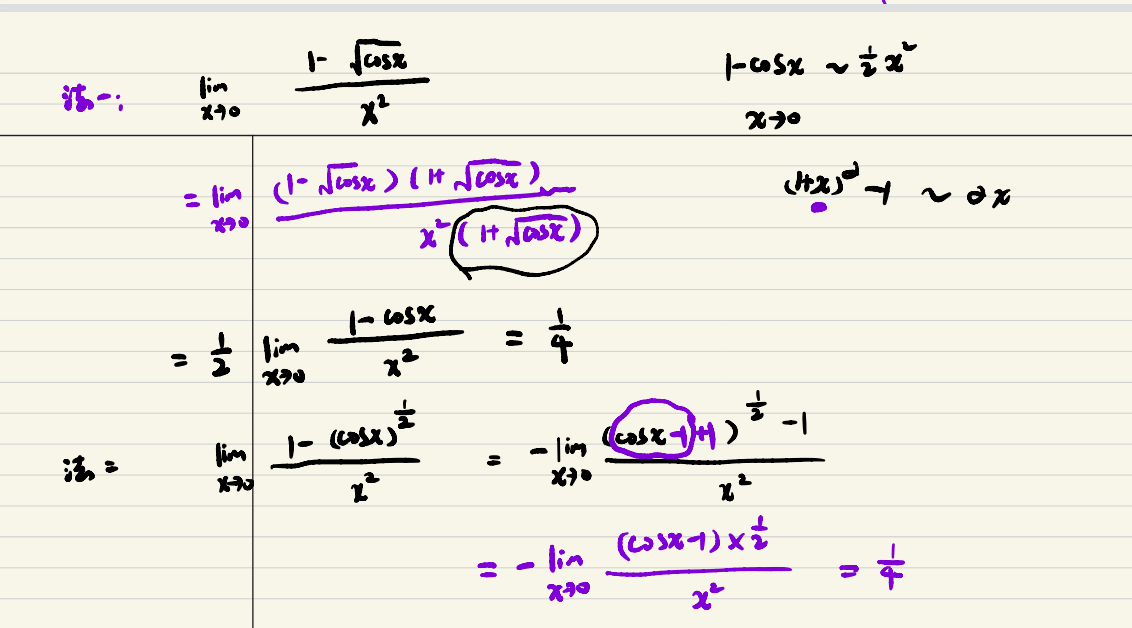 法一: lim x→0 (1-√cosx)/x² 1-cosx ~ ½x² x→0
= lim x→0 (1-√cosx)(1+√cosx)/x²(1+√cosx) (1+x)^α-1 ~ αx
= ½ lim x→0 (1-cosx)/x² = ¼
法二 lim x→0 (1-(cosx)^½)/x² = -lim x→0 ((cosx-1+1)^½-1)/x²
= -lim x→0 ((cosx-1)×½)/x² = ¼